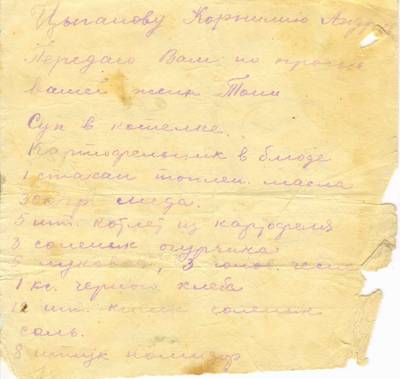 Цыганову Корнилию Андр
Передаю Вам по просьб
вашей жены Тони
Суп в кошелке.
Картофельник в блюде
1 стакан топлен. масла
300 гр. меда.
5 шт. котлет из картофеля
3 соленых огурчика
5 луковок, 3 голов. чесн
1 кг. черного хлеба
10 шт. соленых
соль.
8 штук помидор